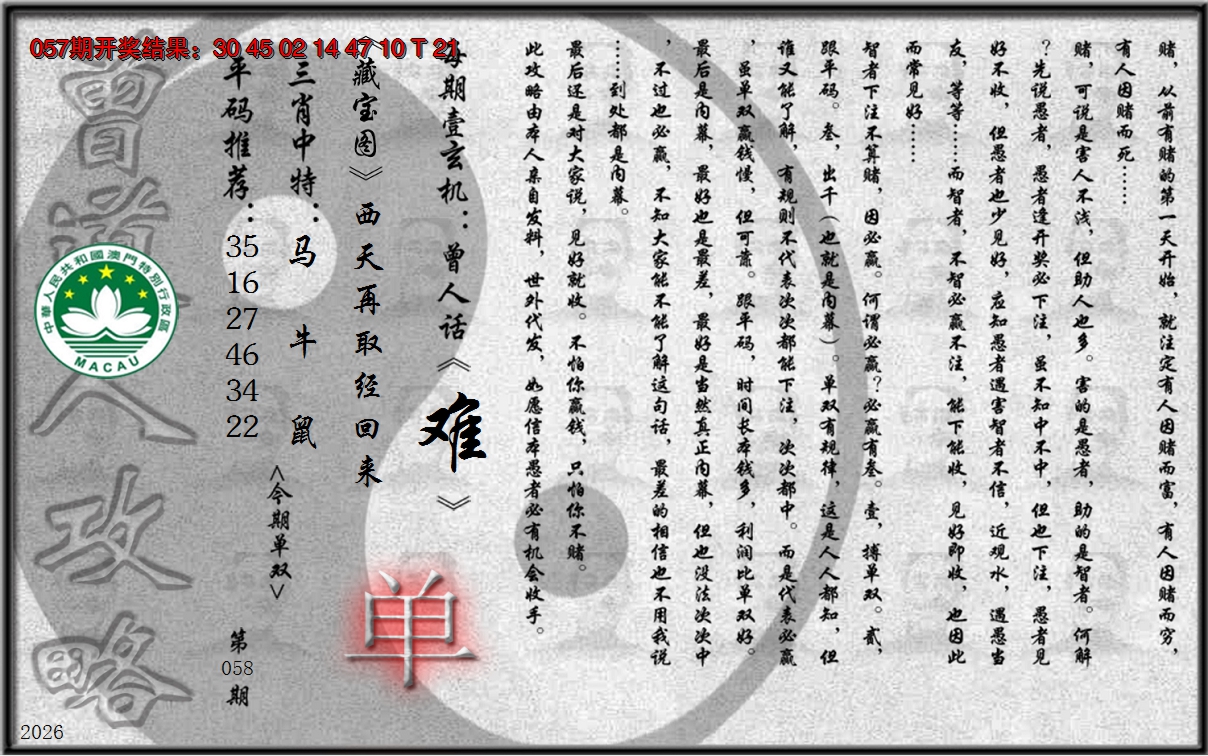 057期开奖结果：30 45 02 14 47 10 T 21
赌，从前有赌的第一天开始，就注定有人因赌而富，有人因赌而穷，
有人因赌而死……
赌，可说是害人不浅，但助人也多。害的是愚者，助的是智者。何解
？先说愚者，愚者逢开奖必下注，虽不知中不中，但也下注，愚者见
好不收，但愚者也少见好，应知愚者遇害智者不信，近观水，遇愚当
友，等等……而智者，不智必赢不注，能下能收，见好即收，也因此
而常见好……
智者下注不算赌，因必赢。何谓必赢？必赢有叁。壹，搏单双。贰，
跟平码。叁，出千（也就是内幕）。单双有规律，这是人人都知，但
谁又能了解，有规则不代表次次都能下注，次次都中。而是代表必赢
，虽单双赢钱慢，但可靠。跟平码，时间长本钱多，利润比单双好。
最后是内幕，最好也是最差，最好是当然真正内幕，但也没法次次中
，不过也必赢，不知大家能不能了解这句话，最差的相信也不用我说
……到处都是内幕。
最后还是对大家说，见好就收。不怕你赢钱，只怕你不赌。
此攻略由本人亲自发料，世外代发，如愿信本愚者必有机会收手。
每期壹玄机：曾人话《难》
《藏宝图》西天再取经回来
单
三肖中特：马 牛 鼠
<今期单双>
平码推荐：35 16 27 46 34 22
第058期
曾道人攻略
中華人民共和國澳門特別行政區
MACAU
2026